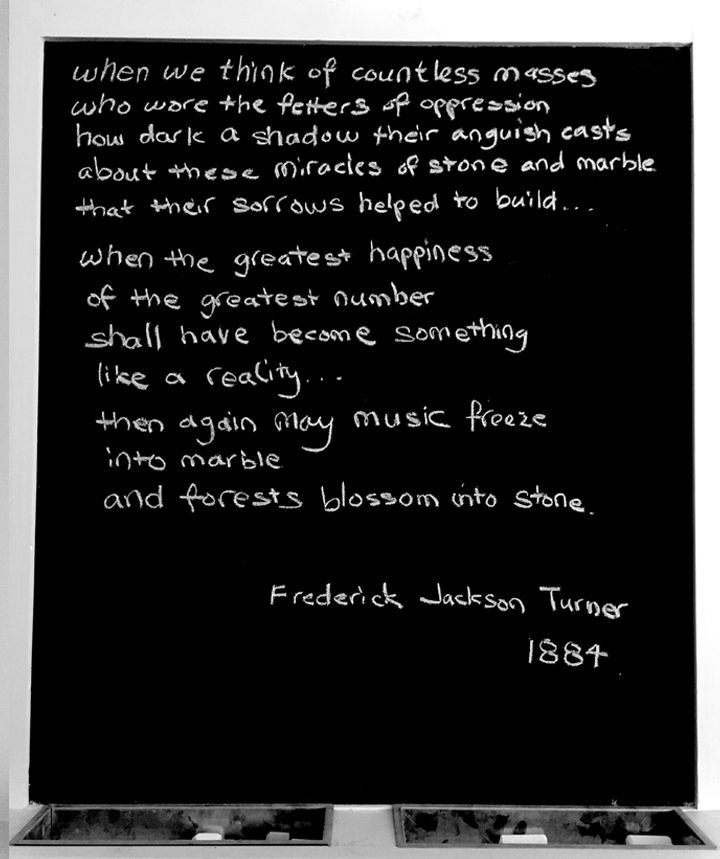 when we think of countless masses
who wore the fetters of oppression
how dark a shadow their anguish casts
about these miracles of stone and marble
that their sorrows helped to build...
when the greatest happiness
of the greatest number
shall have become something
like a reality...
then again may music freeze
into marble
and forests blossom into stone.
Frederick Jackson Turner
1884